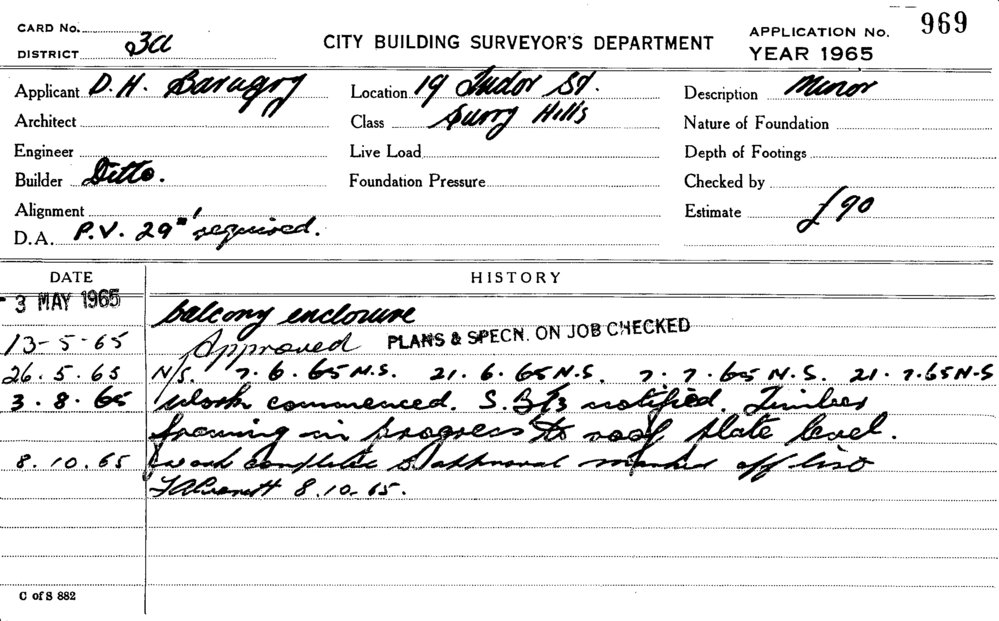 CARD No. CITY BUILDING SURVEYOR'S DEPARTMENT APPLICATION No. 969
DISTRICT 3a YEAR 1965
Applicant D. H. Location 19 Tudor St. Description Minor
Architect Class Surry Hills Nature of Foundation
Engineer Live Load Depth of Footings
Builder Ditto. Foundation Pressure Checked by
Alignment Estimate £90
D.A. P.V. 29 required.
DATE HISTORY
3 MAY 1965 balcony enclosure
13-5-65 Approved PLANS & SPECN. ON JOB CHECKED
26.5.65 N/S. 7.6.65 N.S. 21.6.65 N.S. 7.7.65 N.S. 21.7.65 N.S
3.8.65 Work commenced. notified. Timber
framing in progress to roof plate level.
8.10.65 work complete approval marked off list
8.10.65.
C of S 882